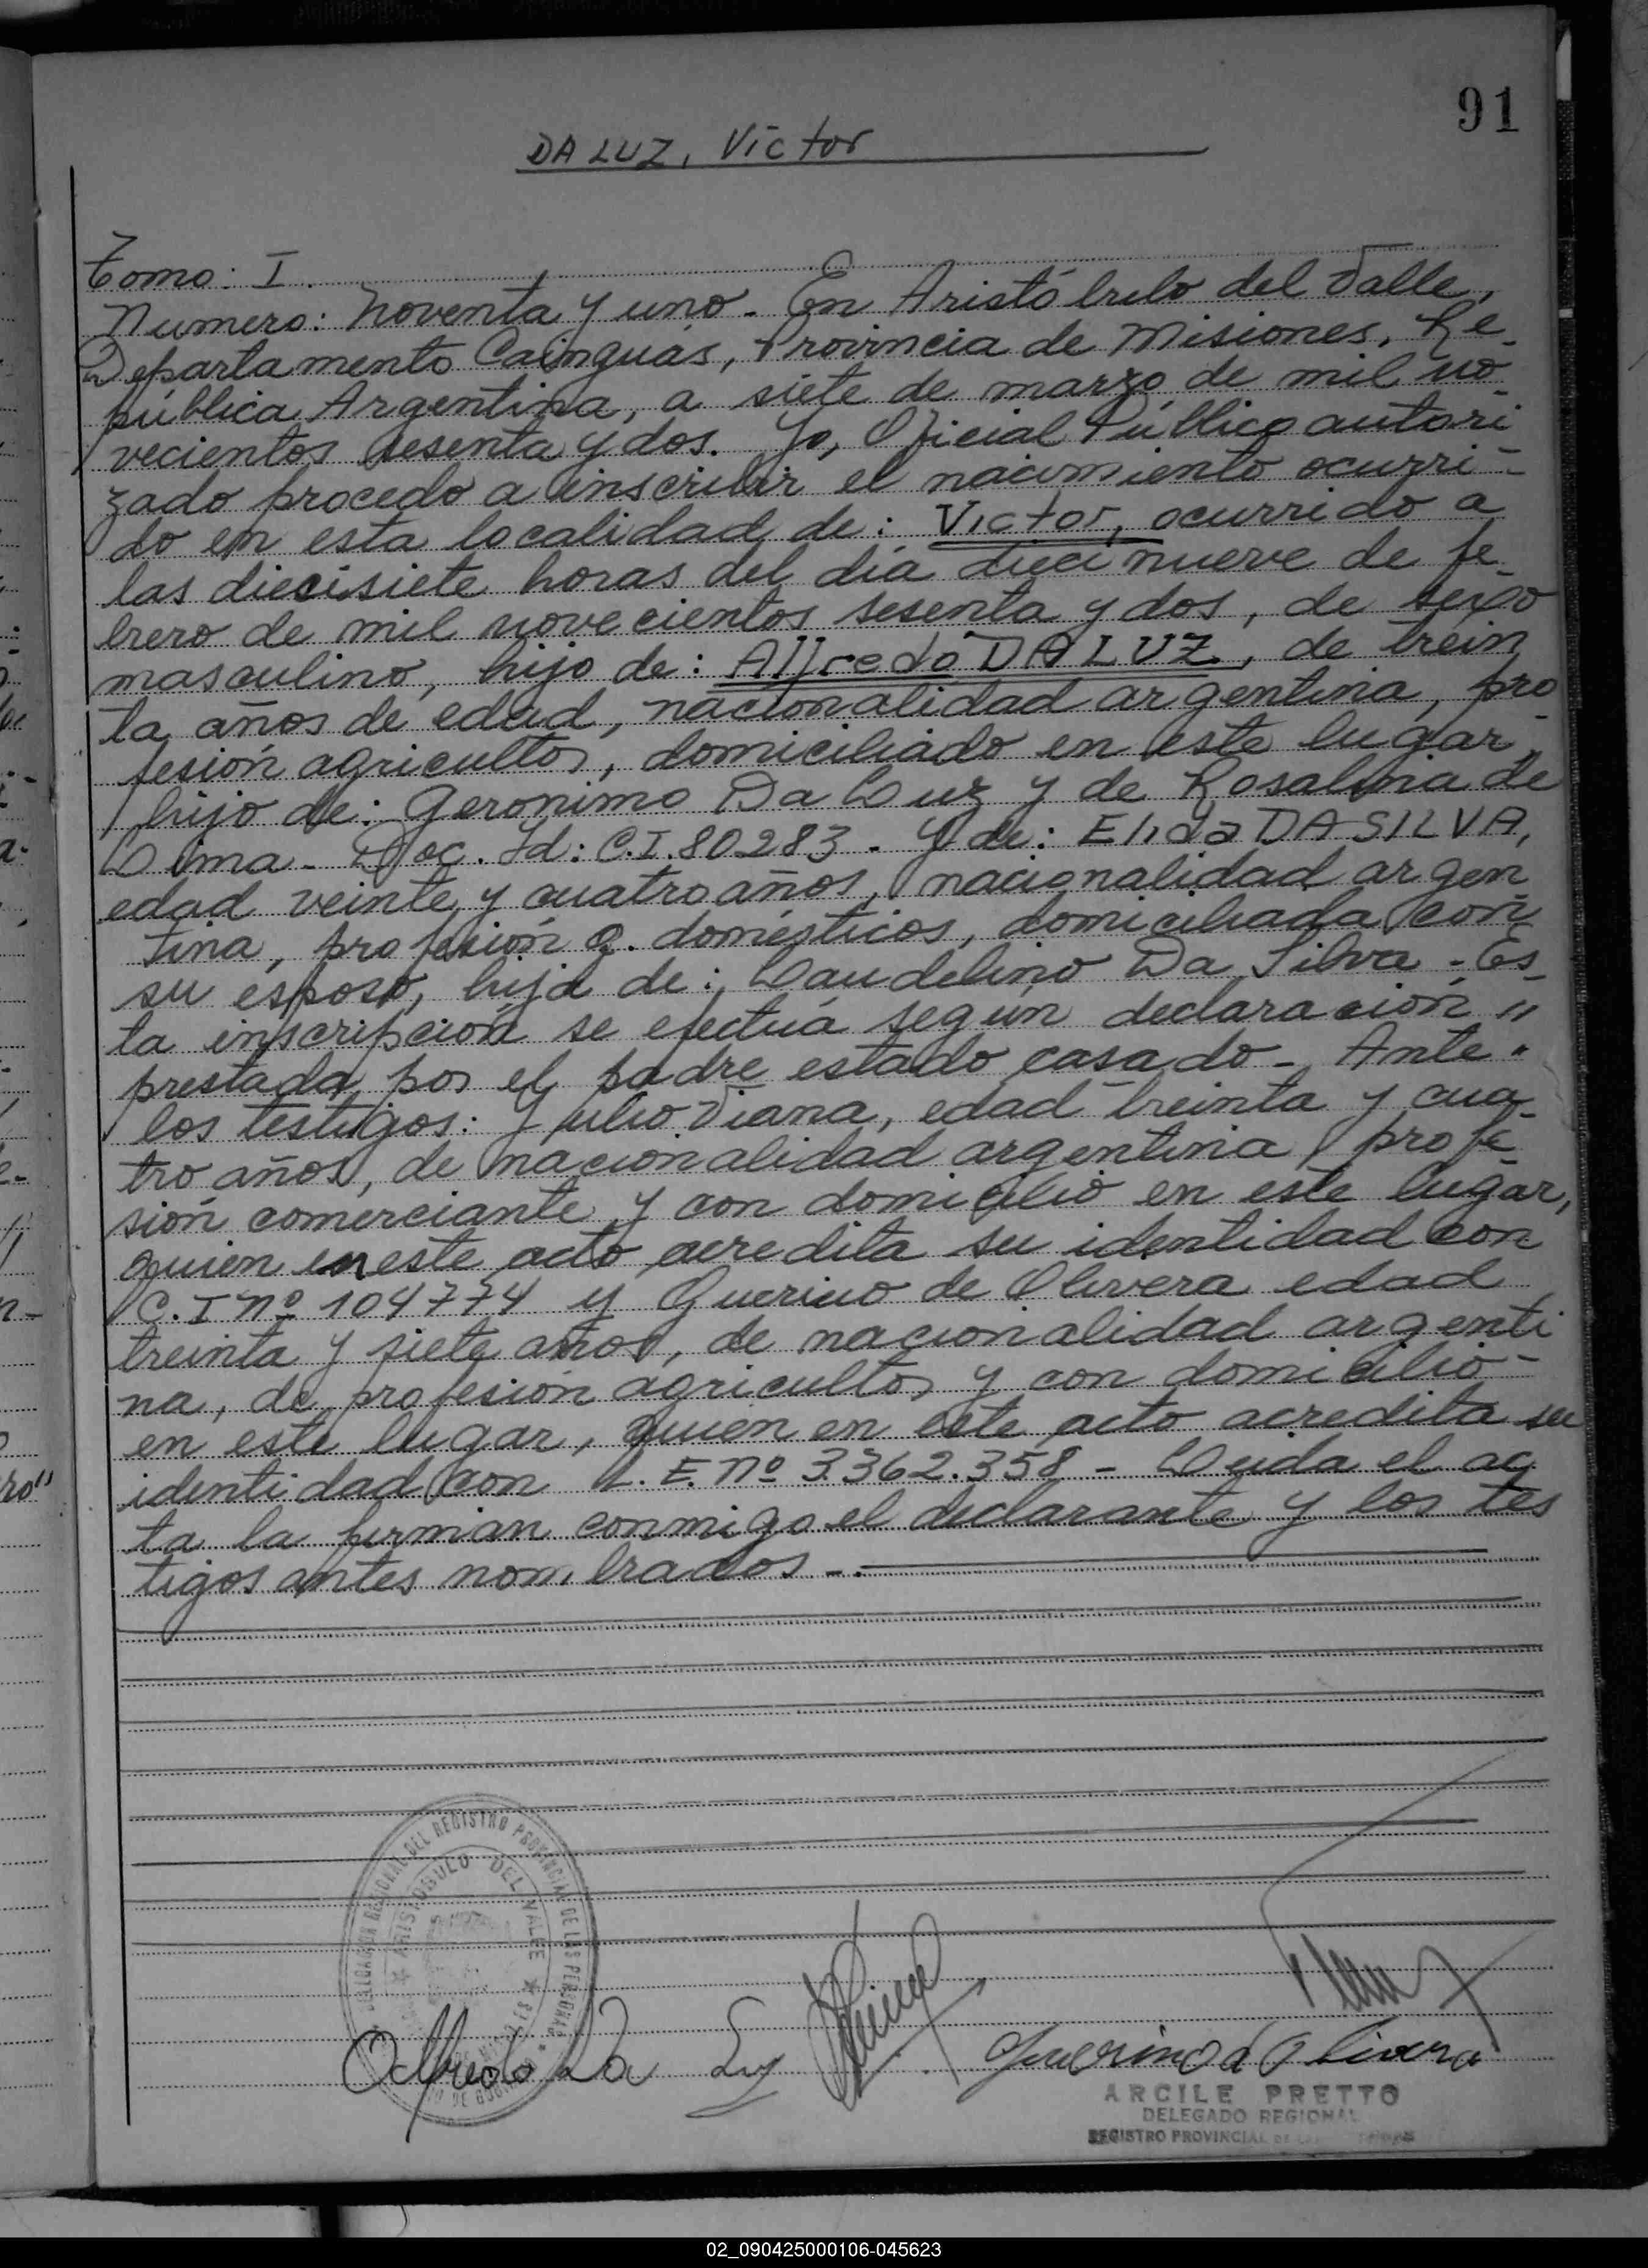 91
DA LUZ, Víctor
Tomo: I.
Numero: noventa y uno. En Aristóbulo del Valle,
Departamento Cainguás, Provincia de Misiones, Re-
pública Argentina, a siete de marzo de mil no-
vecientos sesenta y dos. Yo, Oficial Público autori
zado procedo a inscribir el nacimiento ocurri-
do en esta localidad de: Victor, ocurrido a
las diecisiete horas del día diecinueve de fe-
brero de mil novecientos sesenta y dos, de sexo
masculino, hijo de: Alfredo DA LUZ, de trein
ta años de edad, nacionalidad argentina, pro-
fesión agricultor, domiciliado en este lugar,
hijo de: Geronimo Da Luz y de Rosalina de
Lima - Doc. Id: C.I. 80283. Y de: Elida DA SILVA,
edad veinte y cuatro años, nacionalidad argen
tina, profesión q. domésticos, domiciliada con
su esposo, hija de: Laudelino Da Silva - Es-
ta inscripción se efectúa según declaración "
prestada por el padre estado casado - Ante "
los testigos: Julio Viana, edad treinta y cua-
tro años, de nacionalidad argentina, profe-
sión comerciante y con domicilio en este lugar,
quien en este acto acredita su identidad con
C.I nº 104774 y Querino de Olivera edad
treinta y siete años, de nacionalidad argenti
na, de profesión agricultor y con domicilio -
en este lugar, quien en este acto acredita su
identidad con L.E. nº 3.362.358 - Leida el ac
ta la firman conmigo el declarante y los tes
tigos antes nombrados -.
DELEGACION REGIONAL DEL REGISTRO PROVINCIAL DE LAS PERSONAS
ARISTOBULO DEL VALLE
Alfredo Da Luz
Querino d Olivera
ARCILE PRETTO
DELEGADO REGIONAL
REGISTRO PROVINCIAL DE LAS
02_090425000106-045623